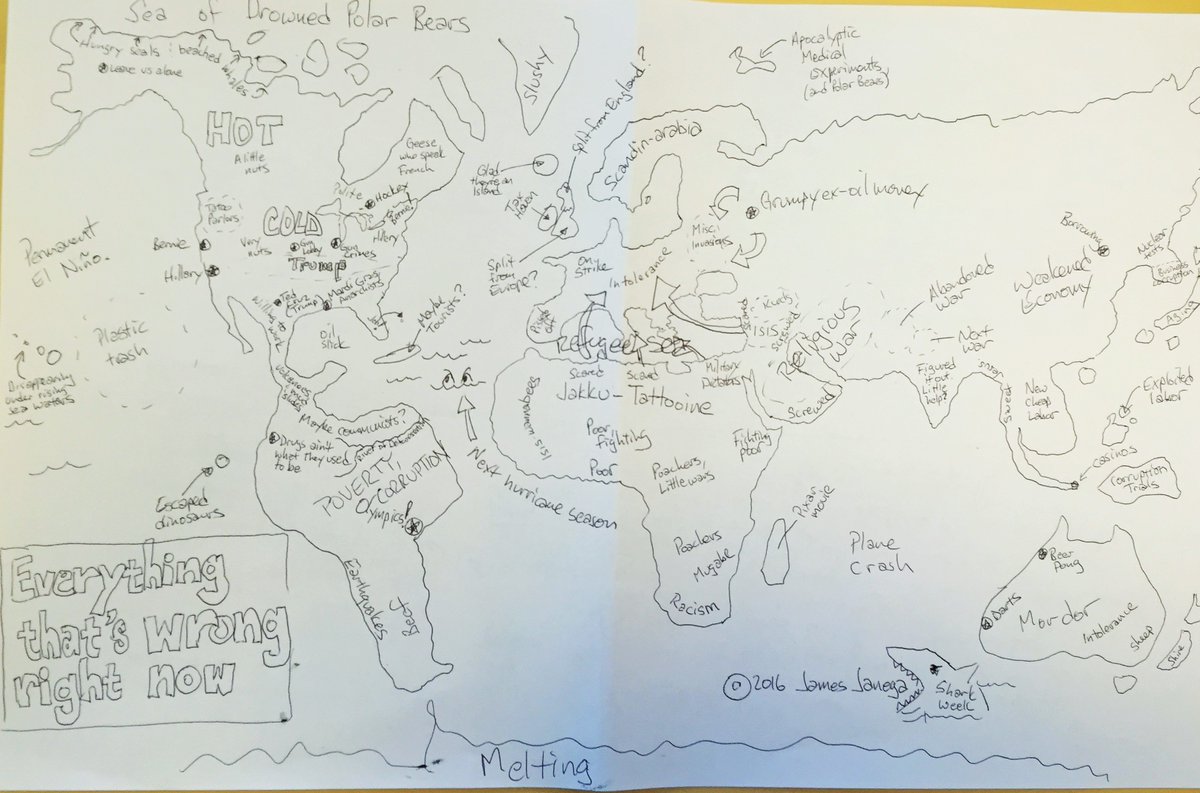 Sea of Drowned Polar Bears
Hungry seals; beached
whales
Leave us alone
Slushy
Apocalyptic
Medical
Experiments
(and Polar Bears)
HOT
A little
nuts
Geese
who speak
French
Split from England?
Scandin-arabia
Glad
they're an
Island
Tax
Haven
Polite
Hockey
Grumpy ex-oil money
Tattoo
Parlors
COLD
Bernie
Hillary
Misc.
Invasions
Borrowing
Nuclear
tests
Permanent
El Niño.
Bernie
Very
nuts
Gun
lobby
Gun
crimes
Trump
Split
from
Europe?
On
Strike
Intolerance
Abandoned
War
Weakened
Economy
Business
corruption
Hillary
Ted
Cruz
(Trump)
Mardi Gras
Anarchists
Maybe
Tourists?
Kurds
ISIS
Screwed
Religious
War
Next
war
Aging
Plastic
trash
Will it
work
oil
slick
Pigs
Refugee Sea
Scared
Scared
Military
Dictators
Figured
it out.
Little
help?
Disappearing
under rising
sea waters
Volcanoes
Jakku-Tattooine
Screwed
Sweat
New
Cheap
Labor
Exploited
labor
ISIS wannabees
Maybe communists?
Drugs ain't
what they used
to be
River of Deforestation
Poor,
fighting
Poor
Fighting
poor
Casinos
POVERTY,
CORRUPTION
Olympics!
Next hurricane season
Poachers,
Little wars
Corruption
Trials
Escaped
dinosaurs
Pixar
movie
Plane
crash
Poachers
Mugabe
Racism
Beer
Pong
Darts
Mordor
Intolerance
sheep
Shire
Everything
that's wrong
right now
Earthquakes
Beef
© 2016 James Janega
Shark
Week
Melting